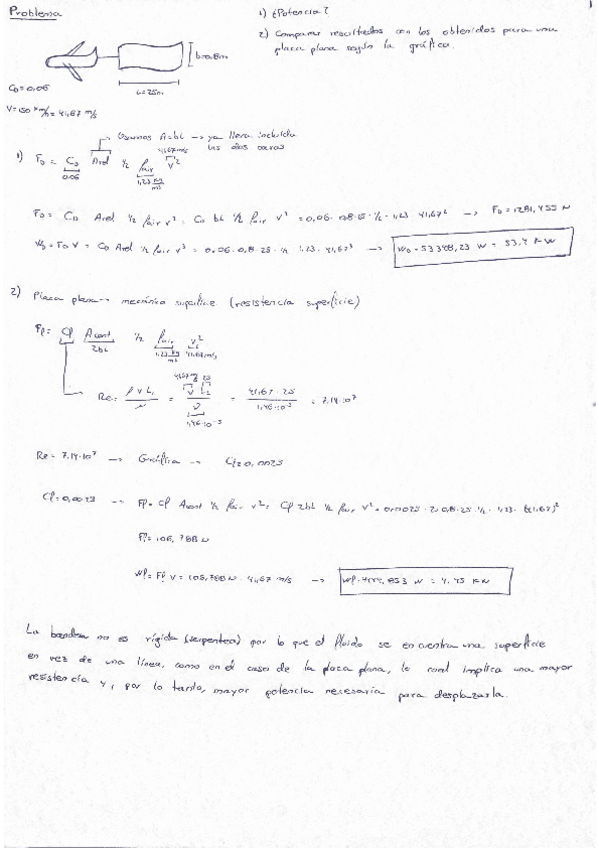 Problema
1) ¿Potencia?
2) Comparar resultados con los obtenidos para una
placa plana según la gráfica.
b=0,8m
L=25m
C_D=0,06
V=150 km/h = 41,67 m/s
Usamos A=bL → ya lleva incluida
las dos caras
1) F_D = C_D A_ref 1/2 ρ_air V²
41,67 m/s
0.06
1,23 kg/m³
F_D = C_D A_ref 1/2 ρ_air V² = C_D bL 1/2 ρ_air V² = 0,06 · 0,8 · 25 · 1/2 · 1,23 · 41,67² → F_D = 1281,455 N
W_D = F_D V = C_D A_ref 1/2 ρ_air V³ = 0,06 · 0,8 · 25 · 1/2 · 1,23 · 41,67³ → W_D = 53398,23 W = 53.4 KW
2) Placa plana → mecánica superficie (resistencia superficie)
F_f = C_f A_cont 1/2 ρ_air V²
2bL
1,23 kg/m³ 41,67 m/s
Re = ρVL/μ = VL/ν = 41,67 · 25 / 1,46·10⁻⁵ = 7.14·10⁷
41,67 m/s 25
1,46·10⁻⁵
Re = 7.14·10⁷ → Gráfica → C_f = 0,0025
→ F_f = C_f A_cont 1/2 ρ_air V² = C_f 2bL 1/2 ρ_air V² = 0,0025 · 2 · 0,8 · 25 · 1/2 · 1,23 · (41,67)²
F_f = 106,788 N
W_f = F_f V = 106,788 N · 41,67 m/s → = 4.45 KW
La bandera no es rígida (serpentea) por lo que el fluido se encuentra una superficie
en vez de una línea, como en el caso de la placa plana, lo cual implica una mayor
resistencia y, por lo tanto, mayor potencia necesaria para desplazarla.